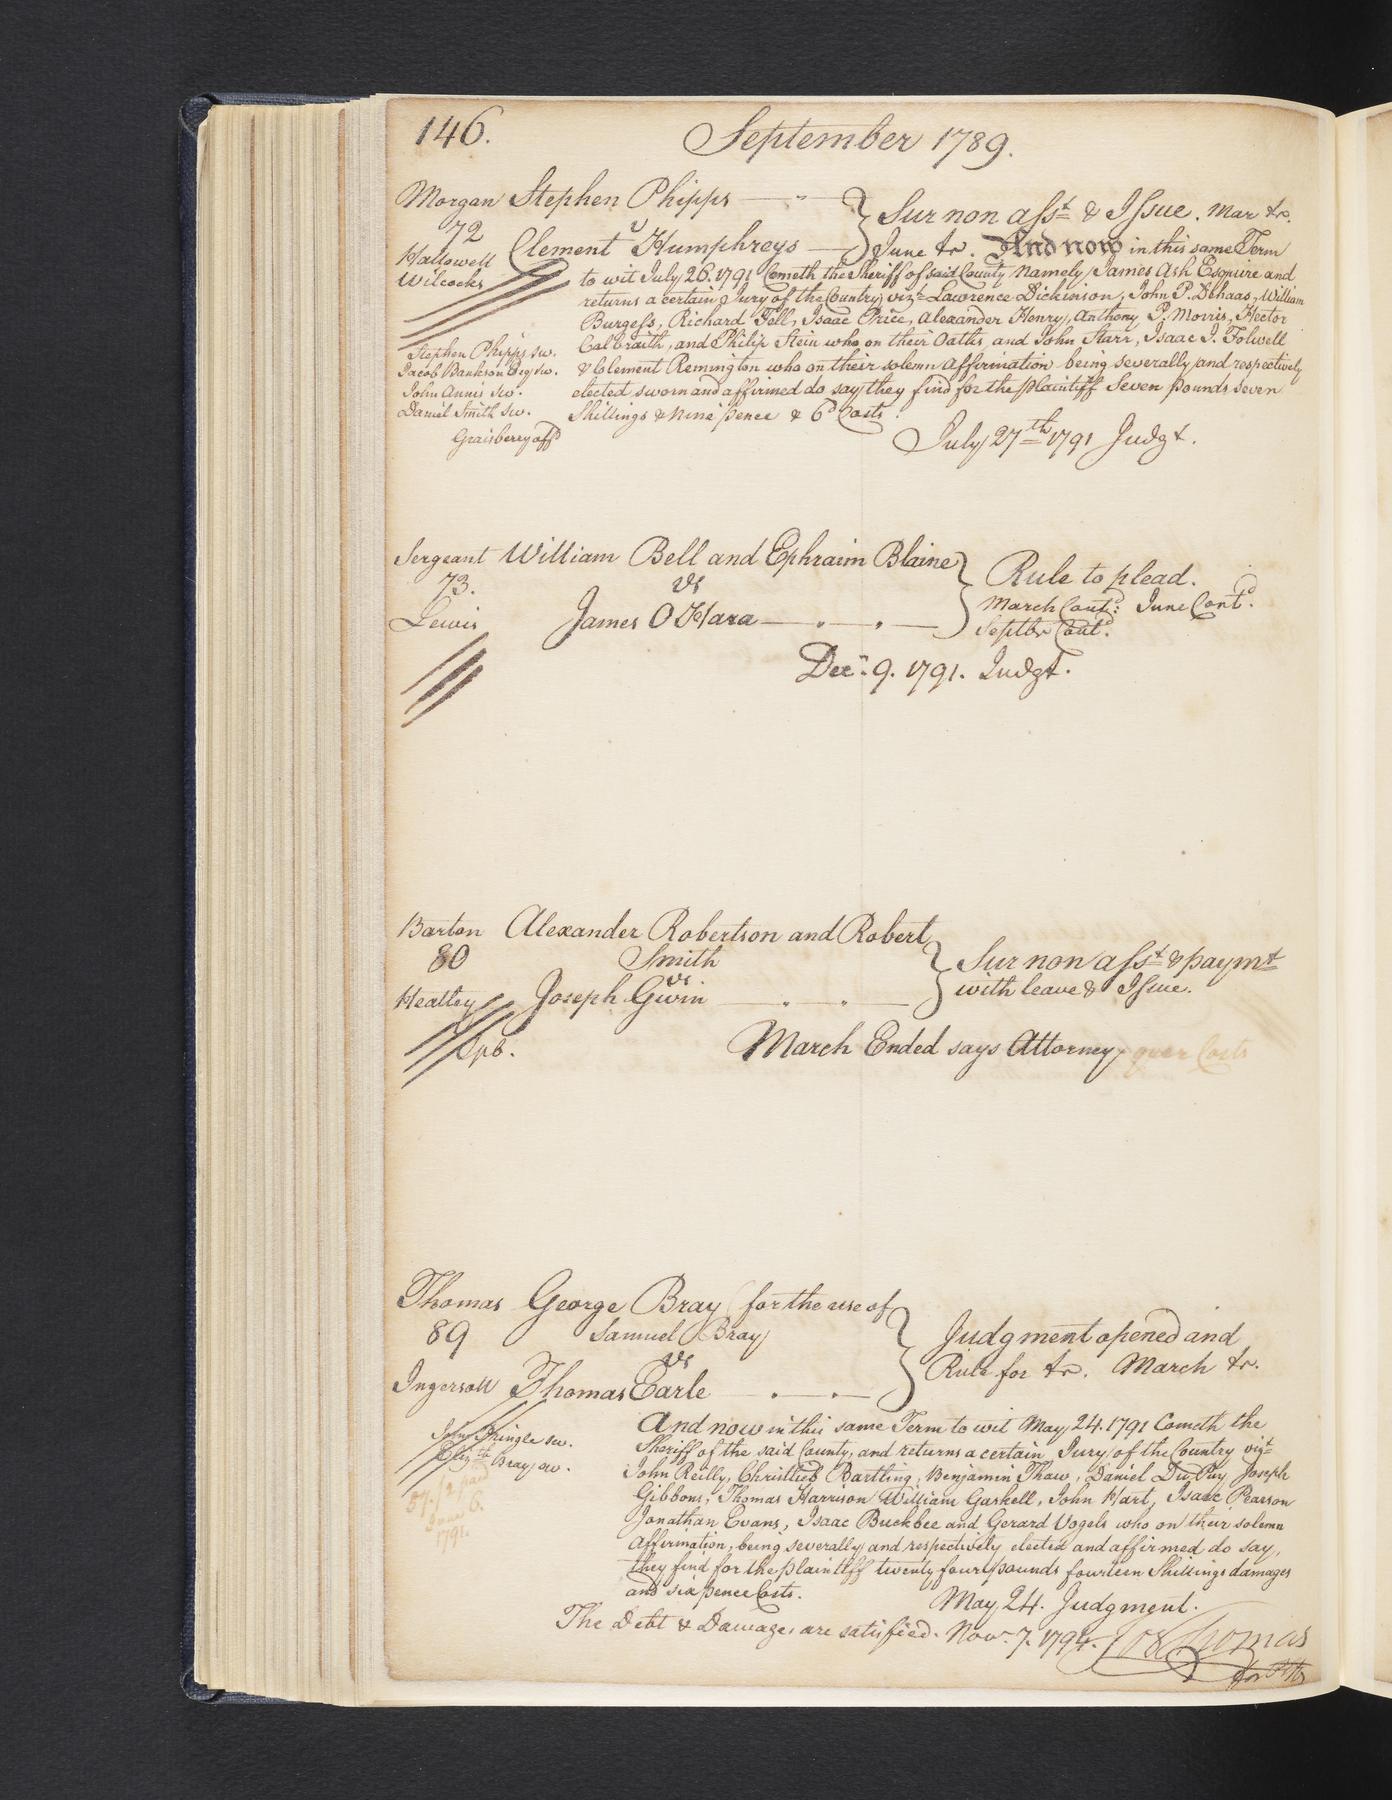 146.
September 1789.
Morgan Stephen Phipps
72 v
Hallowell Clement Humphreys
Wilcocks
Sur non asst & Issue. Mar &c.
June &c. And now in this same Term
to wit July 26. 1791 Cometh the Sheriff of said County Namely James Ash Esquire and
returns a certain Jury of the Country vizt Lawrence Dickinson, John P. DeHaas, William
Burgess, Richard Fell, Isaac Price, Alexander Henry, Anthony P. Morris, Hector
Calbraith, and Philip Stein who on their Oaths, and John Starr, Isaac I. Folwell
& Clement Remington who on their solemn Affirmation being severally and respectively
elected sworn and affirmed do say they find for the plaintiff Seven pounds Seven
Shillings & Nine pence & 6d Costs.
July 27th 1791 Judgt.
Stephen Phipps sw.
Jacob Bankson Esq sw.
John Annis sw.
Daniel Smith sw.
Graisberry affd
Sergeant William Bell and Ephraim Blaine
73. vs
Lewis James O Hara
Rule to plead.
March Contd: June Contd.
Septbr Contd.
Decr. 9. 1791. Judgt.
Barton Alexander Robertson and Robert
80 Smith
vs
Heatley Joseph Gwin
Sur non asst & paymt
with leave & Issue.
Spb.
March Ended says Attorney quer Costs
Thomas George Bray for the use of
89 Samuel Bray
vs
Ingersoll Thomas Earle
Judgment opened and
Rule for &c. March &c.
Pringle sw.
Elizth Bray sw.
paid
June 6.
1791.
And now in this same Term to wit May 24. 1791 Cometh the
Sheriff of the said County, and returns a certain Jury of the Country vizt
John Reilly, Christlieb Bartling, Benjamin Thaw, Daniel Du Puy Joseph
Gibbons, Thomas Harrison William Gaskell, John Hart, Isaac Pearson
Jonathan Evans, Isaac Buckbee and Gerard Vogels who on their solemn
Affirmation, being severally and respectively elected and affirmed do say,
they find for the plaintiff twenty four pounds fourteen Shillings damages
and six pence Costs.
May 24. Judgment.
The Debt & Damages are satisfied. Novr. 7. 1794. Jos Thomas
for Plff